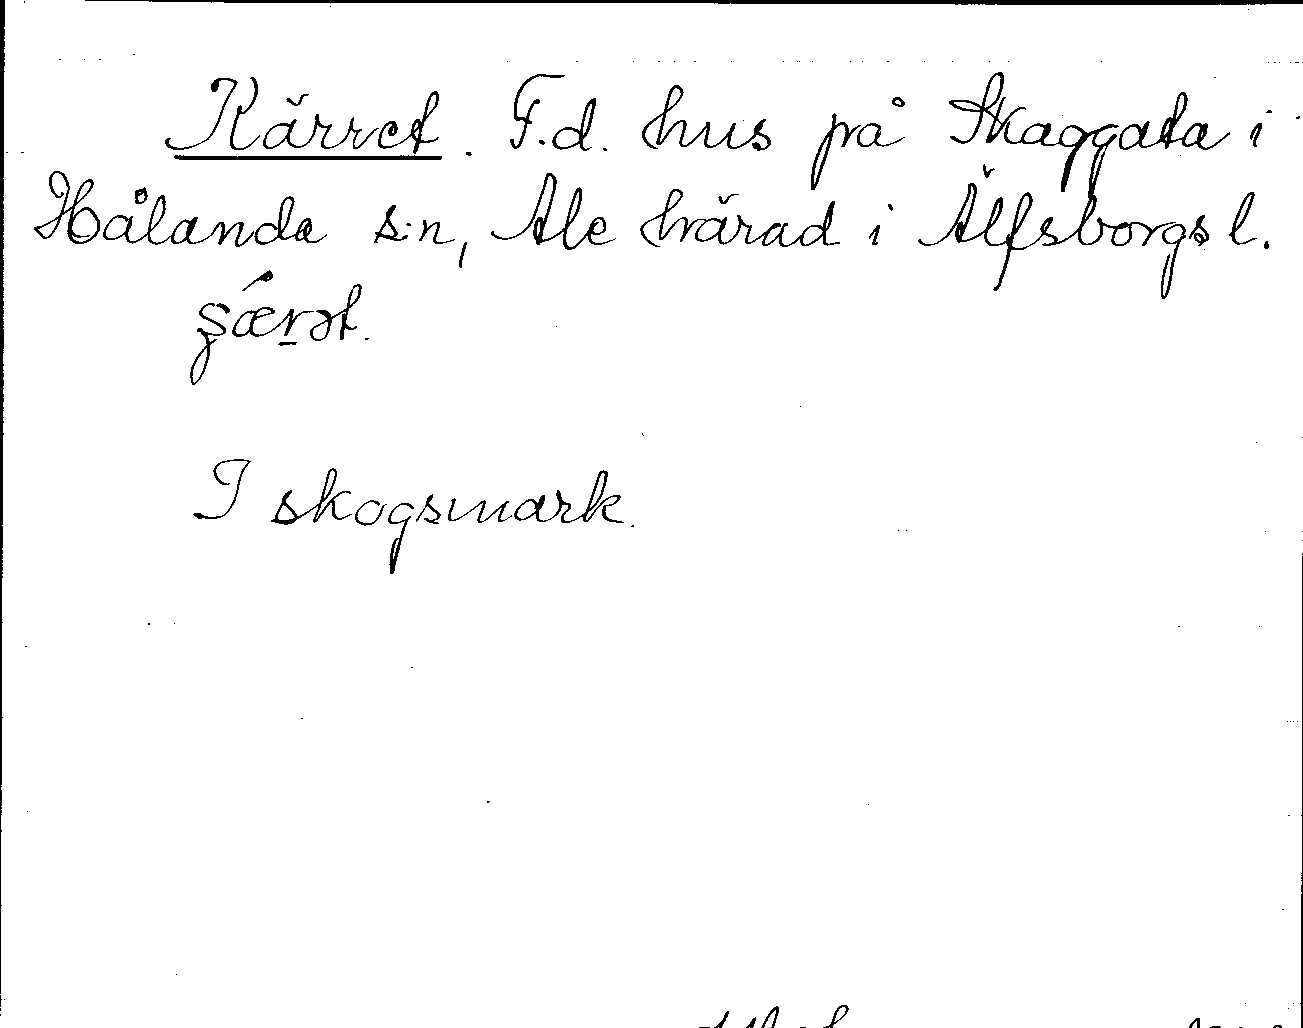 Kärret. F.d. hus på Skaggata i
Hålanda s:n, Ale härad i Älfsborgs l.
I skogsmark.